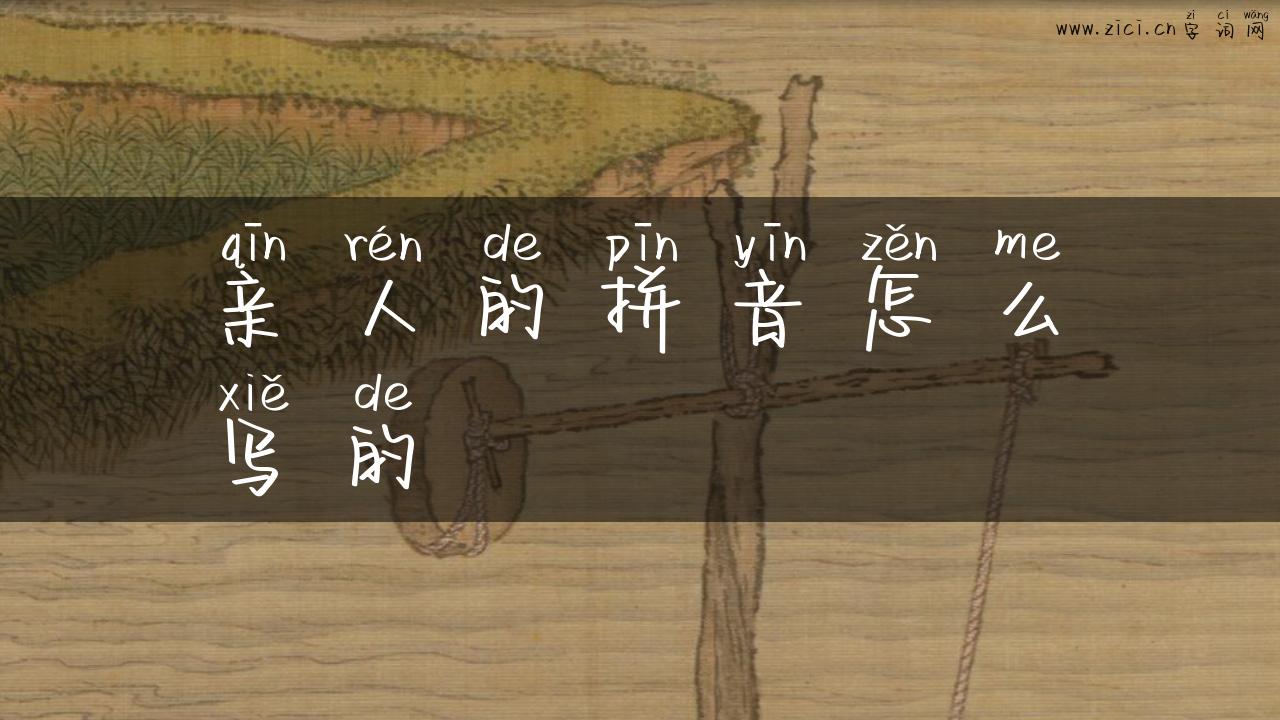 zì cí wǎng
www.zici.cn 字词网
qīn rén de pīn yīn zěn me
亲人的拼音怎么
xiě de
写的